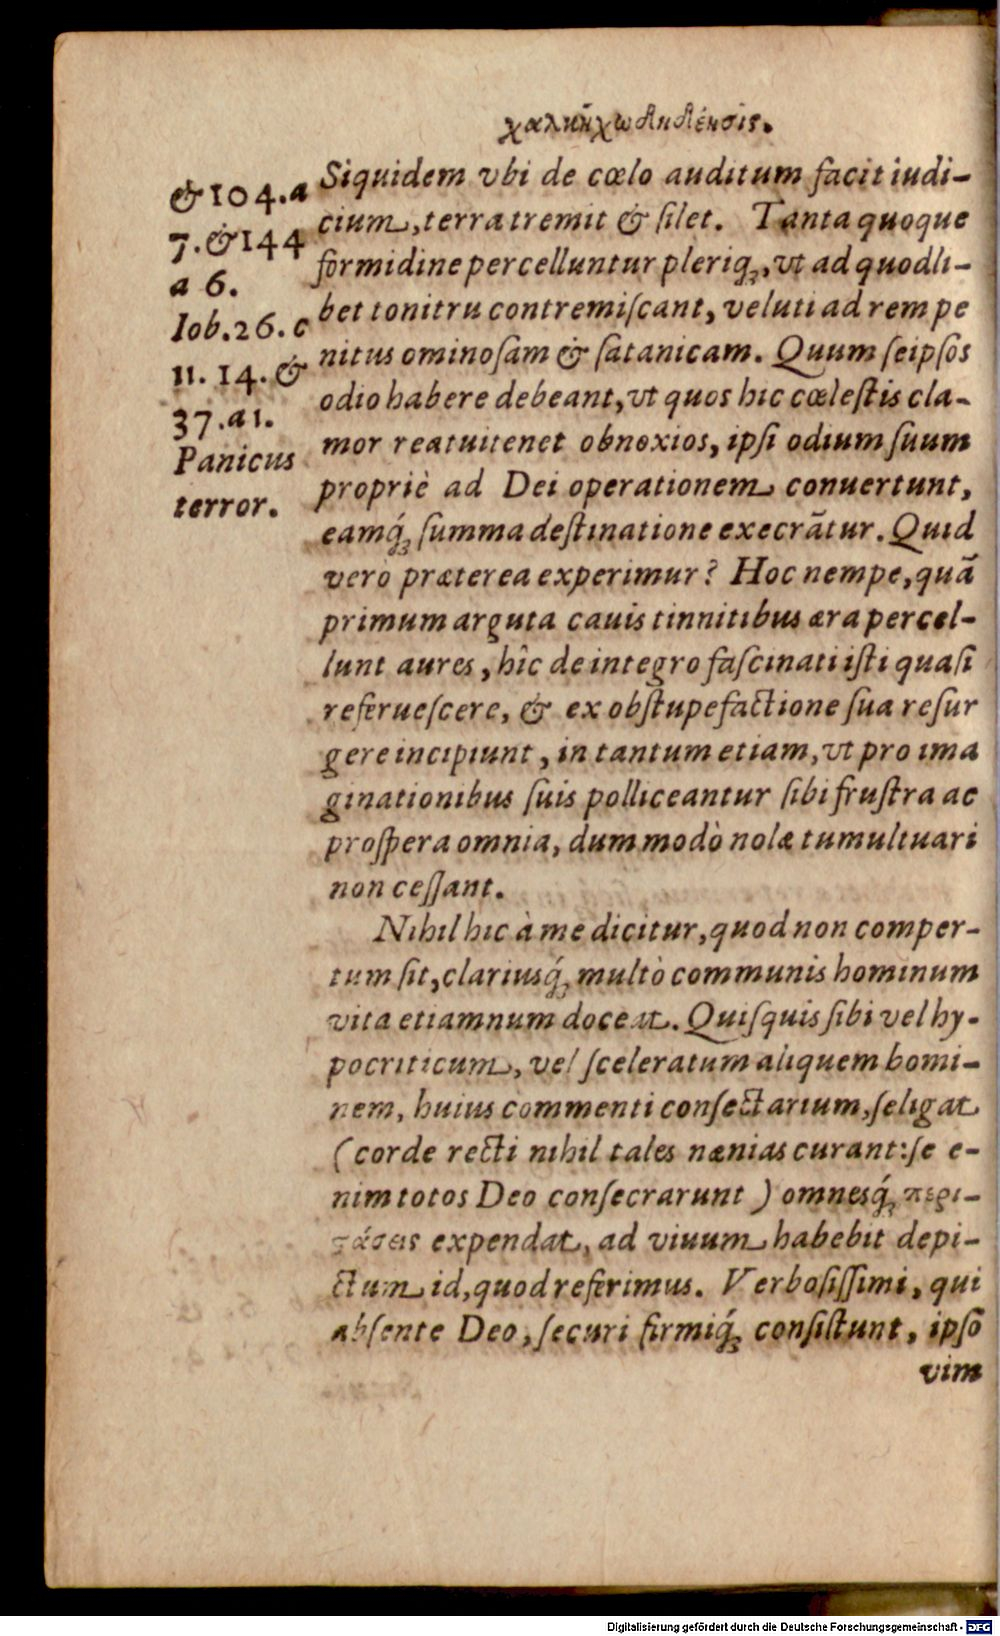 χαλκηχωδηδιένσις.
&104.a
7. &144
a 6.
Iob.26. c
11. 14. &
37.a1.
Panicus
terror.
Siquidem vbi de cœlo auditum facit iudi-
cium, terra tremit & ſilet. Tanta quoque
formidine percelluntur pleriq́ꝫ, vt ad quodli-
bet tonitru contremiſcant, veluti ad rem pe
nitus ominoſam & ſatanicam. Quum ſeipſos
odio habere debeant, vt quos hic cœleſtis cla-
mor reatui tenet obnoxios, ipſi odium ſuum
propriè ad Dei operationem conuertunt,
eamq́ꝫ ſumma deſtinatione execrãtur. Quid
verò præterea experimur? Hoc nempe, quã
primum arguta cauis tinnitibus æra percel-
lunt aures, hîc de integro faſcinati iſti quaſi
referueſcere, & ex obſtupefactione ſua reſur
gere incipiunt, in tantum etiam, vt pro ima
ginationibus ſuis polliceantur ſibi fruſtra ac
proſpera omnia, dum modò nolæ tumultuari
non ceſſant.
Nihil hic à me dicitur, quod non comper-
tum ſit, clariusq́ꝫ multò communis hominum
vita etiamnum doceat. Quiſquis ſibi vel hy-
pocriticum, vel ſceleratum aliquem homi-
nem, huius commenti conſectarium, ſeligat
(corde recti nihil tales nænias curant: ſe e-
nim totos Deo conſecrarunt) omnesq́ꝫ περι-
ςάσεις expendat, ad viuum habebit depi-
ctum id, quod referimus. Verboſiſſimi, qui
abſente Deo, ſecuri firmiq́ꝫ conſiſtunt, ipſo
vim
Digitalisierung gefördert durch die Deutsche Forschungsgemeinschaft - DFG